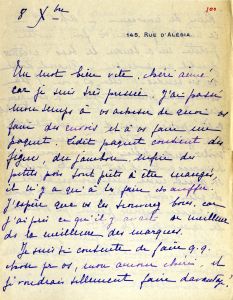 8 Xbre
100
145, RUE D'ALÉSIA.
Un mot bien vite, chère aimée,
car je suis très pressée. J'ai passé
mon temps à vs acheter de quoi vs
faire des envois et à vs faire une
paquet. Ledit paquet contient des
figues, du jambon, enfin des
petits pois tout prêts à être mangés,
il n'y a qu'à les faire réchauffer.
J'espère que vs les trouverez bons, car
j'ai pris ce qu'il y avait de meilleur
de la meilleure des marques.
Je suis si contente de faire q.q.
chose pr vs, mon amour chéri, et
je voudrais tellement faire davantage!